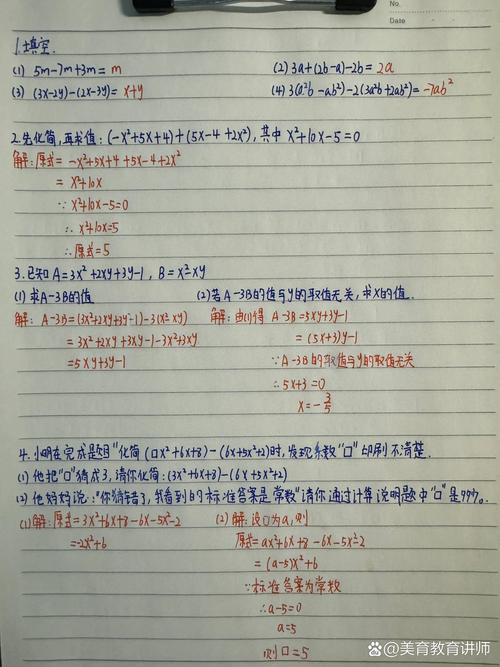 No.
Date
1.填空.
(1) 5m-7m+3m= m (2) 3a+(2b-a)-2b= 2a
(3) (3x-2y)-(2x-3y)= x+y (4) 3(a²b-ab²)-2(3a²b+2ab²)=-7ab²
2.先化简,再求值:(-x²+5x+4)+(5x-4+2x²),其中x²+10x-5=0
解:原式= -x²+5x+4+5x-4+2x²
= x²+10x
∵ x²+10x-5=0
∴ x²+10x=5
∴ 原式=5
3.已知A=3x²+2xy+3y-1, B=x²-xy
(1) 求A-3B的值 (2)若A-3B的值与y的取值无关,求x的值.
解: A-3B=(3x²+2xy+3y-1)-3(x²-xy) 解:由(1)得 A-3B=5xy+3y-1
= 3x²+2xy+3y-1-3x²+3xy = (5x+3)y-1
=5xy+3y-1 ∵A-3B的取值与y的取值无关
∴5x+3=0
x=-3/5
4.小明在完成题目"化简(口x²+6x+8)-(6x+5x²+2)时,发现系数"口"印刷不清楚.
(1)他把"口"猜成3,请你化简:(3x²+6x+8)-(6x+5x²+2)
(2)他妈妈说:"你猜错了,我看到的标准答案是常数"请你通过计算说明题中"口"是几?
(1)解:原式=3x²+6x+8-6x-5x²-2 (2)解:设口为a,则
=-2x²+6 原式=ax²+6x+8-6x-5x²-2
=(a-5)x²+6
∵标准答案为常数
∴a-5=0
a=5
则口=5
@美育教育讲师